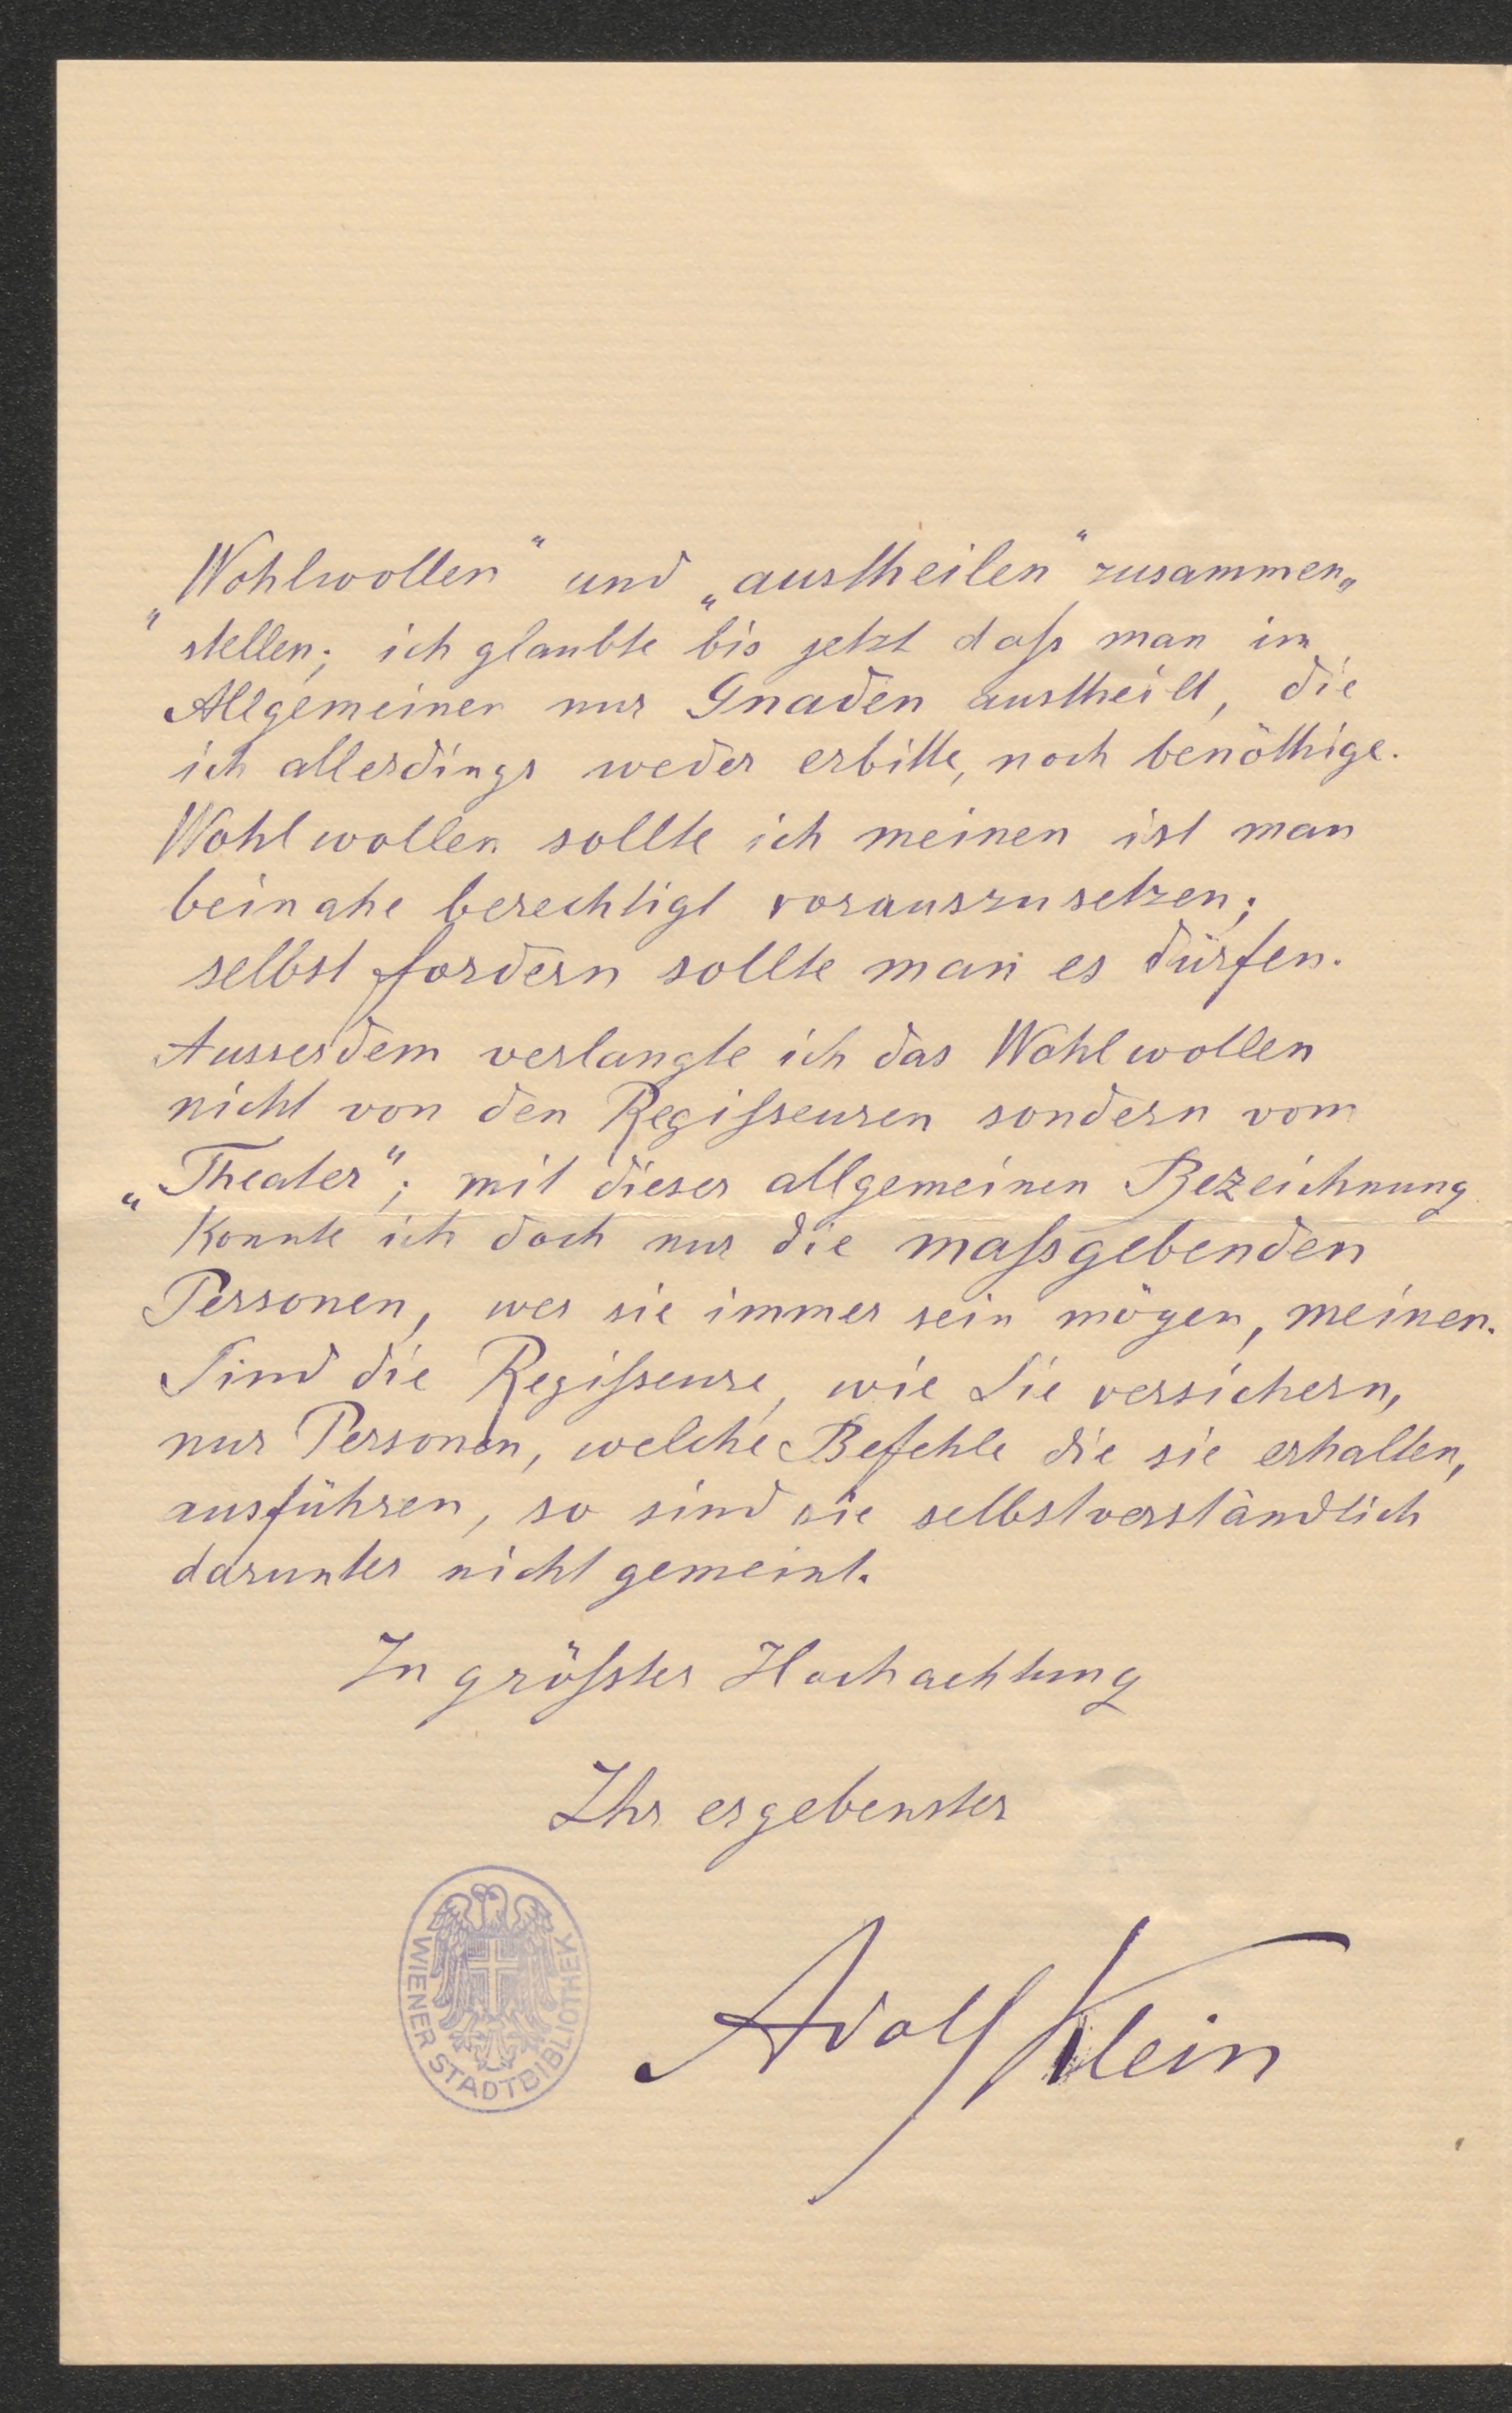 „Wohlwollen“ und „austheilen“ zusammen„
stellen; ich glaubte bis jetzt daſs man im
Allgemeinen nur Gnaden austheilt, die
ich allerdings weder erbitte, noch benöthige.
Wohlwollen sollte ich meinen ist man
beinahe berechtigt vorauszusetzen;
selbst fordern sollte man es dürfen.
Ausserdem verlangte ich das Wohlwollen
nicht von den Regiſseuren sondern vom
„Theater“; mit dieser allgemeinen Bezeichnung
konnte ich doch nur die maſsgebenden
Personen, wer sie immer sein mögen, meinen.
Sind die Regiſseure, wie Sie versichern,
nur Personen, welche Befehle die sie erhalten,
ausführen, so sind sie selbstverständlich
darunter nicht gemeint.
In gröſster Hochachtung
Ihr ergebenster
Adolf Klein
WIENER STADTBIBLIOTHEK